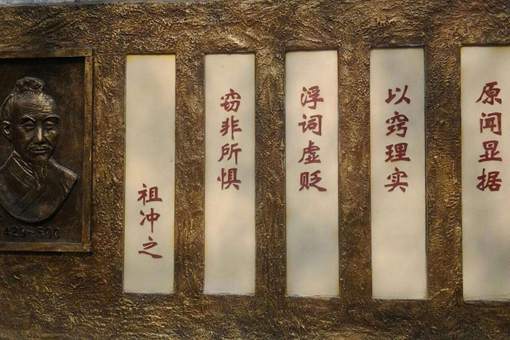 原闻显据
以窍理实
浮词虚贬
窃非所惧
祖冲之
429-500